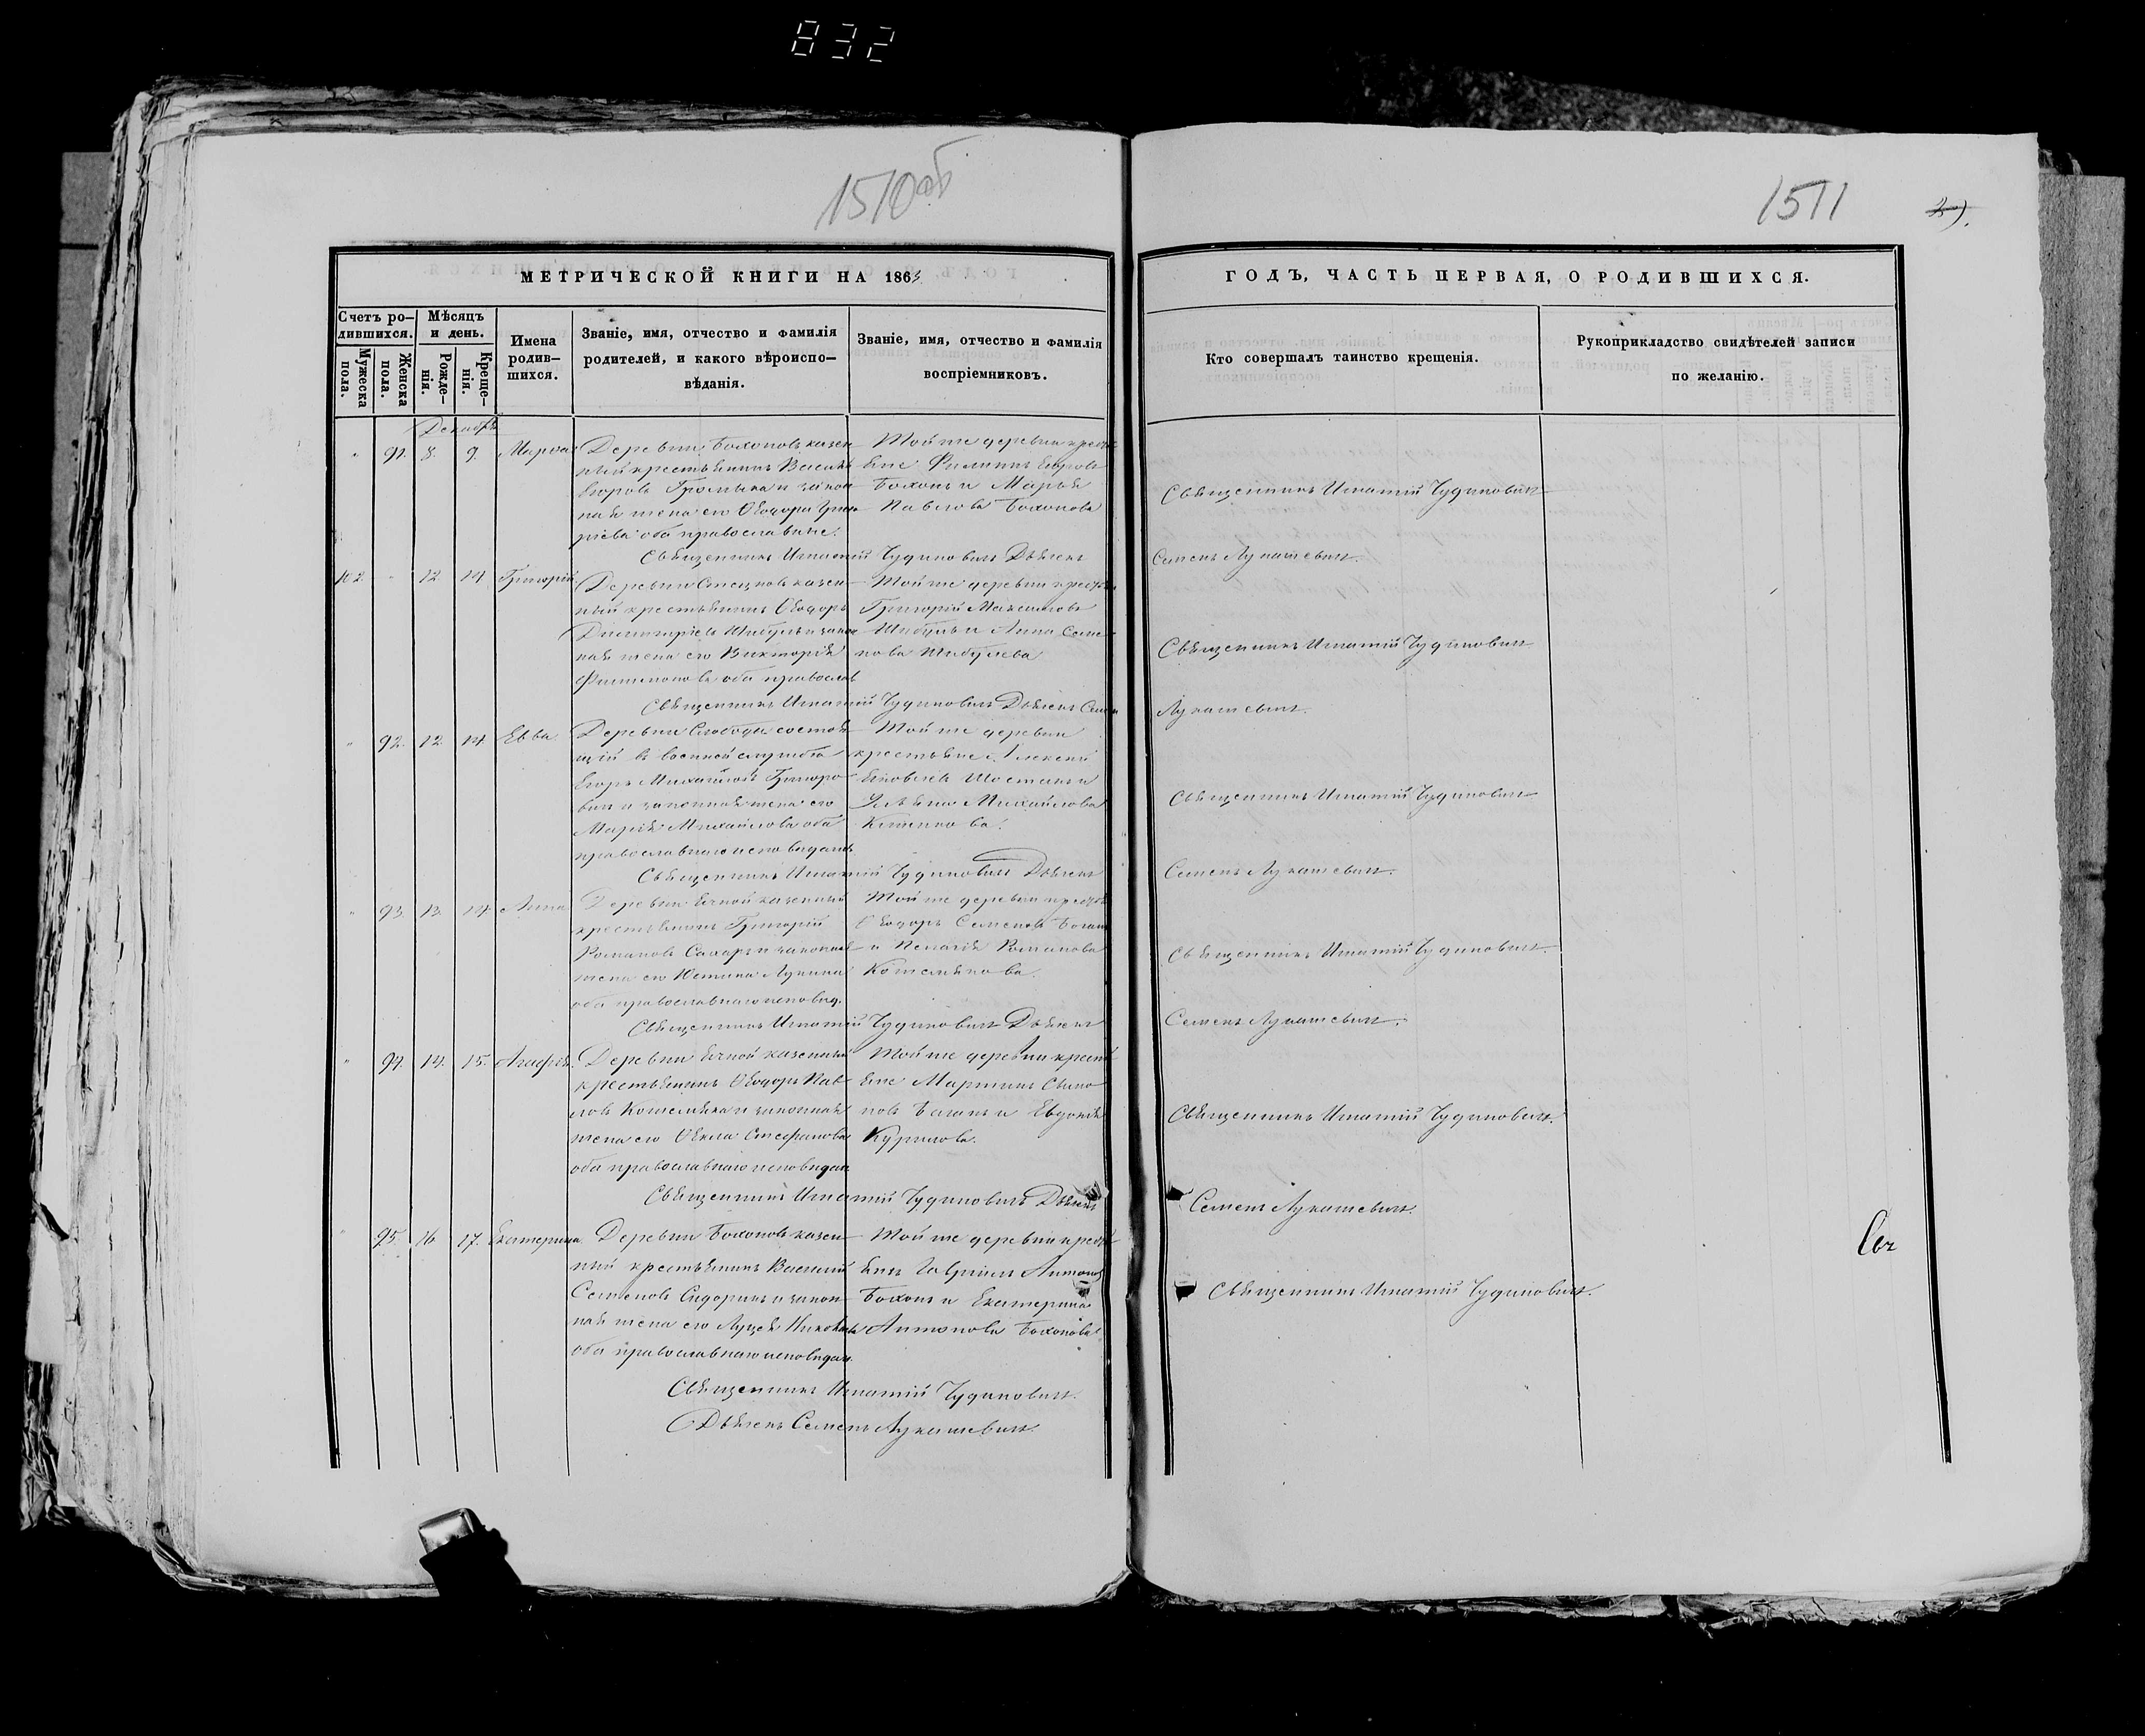 832
1510 об
1511
МЕТРИЧЕСКОЙ КНИГИ НА 1863
ГОДЪ, ЧАСТЬ ПЕРВАЯ, О РОДИВШИХСЯ.
Счетъ ро-
дившихся.
Мужеска
пола.
Женска
пола.
Мѣсяцъ
и день.
Рожде-
нія.
Креще-
нія.
Имена
родив-
шихся.
Званіе, имя, отчество и фамилія
родителей, и какого вѣроиспо-
вѣданія.
Званіе, имя, отчество и фамилія
воспріемниковъ.
Кто совершалъ таинство крещенія.
Рукоприкладство свидѣтелей записи
по желанію.
Декабрь
91. 8. 9. Марѳа
Деревни Бохоновъ казен
ный крестьянинъ Василій
Егоровъ Громыка и закон
ная жена его Ѳеодора Григо
ріева оба православные.
Той же деревни крест
яне Филиппъ Егоровъ
Бохонъ и Марья
Павлова Бохонова
Священникъ Игнатій Чудиновичъ
Священникъ Игнатій Чудиновичъ Дьячекъ Семенъ Лукашевичъ.
102. 12 14 Григорій
Деревни казен
ный крестьянинъ Ѳеодоръ
Димитріевъ Шибунъ и закон
ная жена его Викторія
Филимонова оба православ
Той же деревни крестья
Григорій Максимовъ
и Анна Семе
нова
Священникъ Игнатій Чудиновичъ
Священникъ Игнатій Чудиновичъ Дьячекъ Семенъ Лукашевичъ.
92. 12 14. Евва
Деревни Слободы состоя
щій въ военной службѣ
Егоръ Михайловъ Григоро
вичъ и законная жена его
Марія Михайлова оба
православнаго исповѣданія
Той же деревни
крестьяне Алексей
Яковлевъ и
Ульяна Михайлова
Священникъ Игнатій Чудиновичъ
Священникъ Игнатій Чудиновичъ Дьячекъ Семенъ Лукашевичъ.
93. 13. 14. Анна
Деревни Ячной казенный
крестьянинъ Григорій
Романовъ Сахаръ и законная
жена его Юстина Лукина
оба православнаго исповѣд.
Той же деревни крестья
Ѳеодоръ Семеновъ Баганъ
и Пелагія Романова
Котелякова.
Священникъ Игнатій Чудиновичъ.
Священникъ Игнатій Чудиновичъ Дьячекъ Семенъ Лукашевичъ.
94. 14. 15. Агафія.
Деревни Ячной казенный
крестьянинъ Ѳеодоръ Пав
ловъ Котеляка и законная
жена его Ѳекла Стефанова
оба православнаго исповѣдан
Той же деревни крестья
яне Мартинъ Симо
новъ Баганъ и Евдокія
Курилова.
Священникъ Игнатій Чудиновичъ.
Священникъ Игнатій Чудиновичъ Дьячекъ Семенъ Лукашевичъ.
95. 16. 17. Екатерина
Деревни Бохоновъ казен
ный крестьянинъ Василій
Семеновъ Сидоринъ и закон
ная жена его Луцея Николаева
оба православнаго исповѣдан.
Той же деревни крестья
яне Гавріилъ Антоновъ
Бохонъ и Екатерина
Антонова Бохонова
Священникъ Игнатій Чудиновичъ.
Священникъ Игнатій Чудиновичъ.
Дьячекъ Семенъ Лукашевичъ.